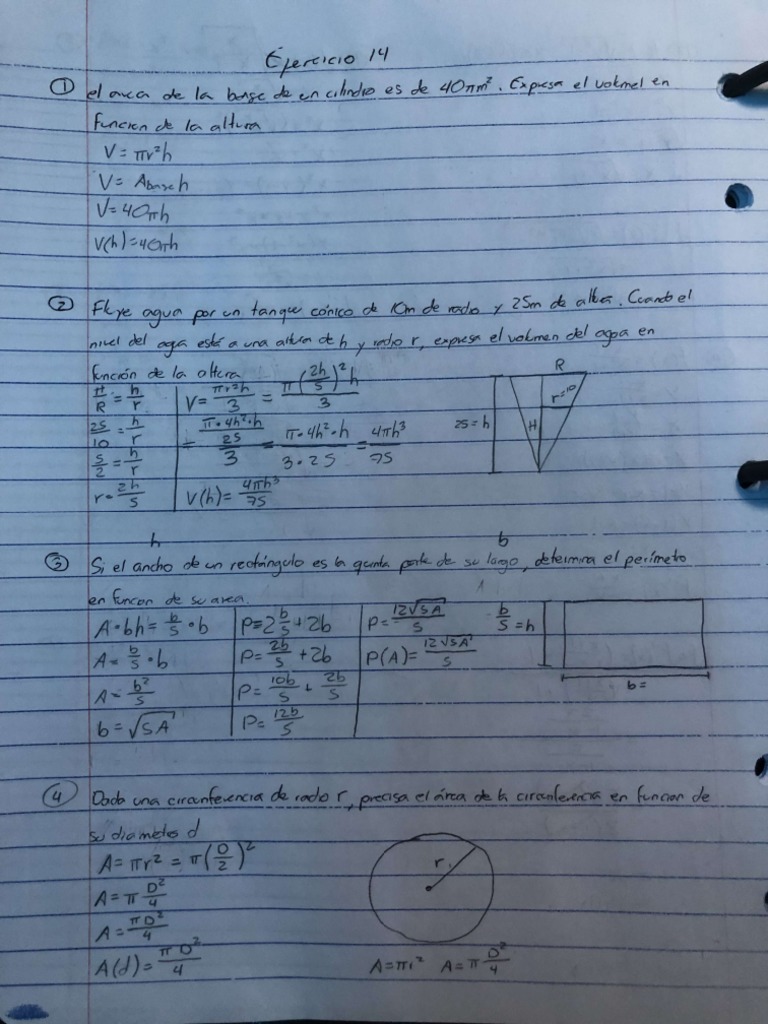 Ejercicio 14
① el area de la base de un cilindro es de 40πm². Expresa el volumel en
funcion de la altura
V = πr²h
V = Abase h
V = 40πh
V(h) = 40πh
② Fluye agua por un tanque cónico de 10m de radio y 25m de altura. Cuando el
nivel del agua esté a una altura de h y radio r, expresa el volumen del agua en
función de la altura
H/R = h/r
25/10 = h/r
5/2 = h/r
r = 2h/5
V = πr²h/3 = π(2h/5)²h/3
= π·4h²·h/25/3 = π·4h²·h/3·25 = 4πh³/75
V(h) = 4πh³/75
R
r=10
25 = h
H
h b
③ Si el ancho de un rectángulo es la quinta parte de su largo, determina el perímetro
en funcon de su area.
A·bh = b/5 · b
A = b/5 · b
A = b²/5
b = √5A
P = 2b/5 + 2b
P = 2b/5 + 2b
P = 10b/5 + 2b/5
P = 12b/5
P = 12√5A/5
P(A) = 12√5A/5
b/5 = h
b =
④ Dada una circunferencia de radio r, precisa el área de la circunferencia en funcion de
su diametro d
A = πr² = π(D/2)²
A = π D²/4
A = πD²/4
A(d) = πD²/4
r
A = πr² A = π D²/4